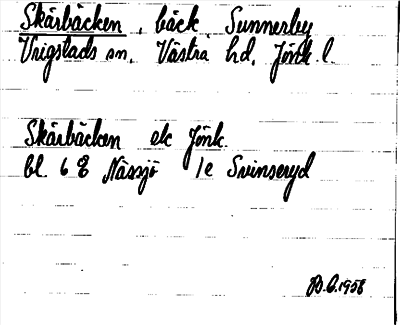 Skärbäcken, bäck Sunnerby
Vrigstads sn. Västra hd. Jönk. l.
Skärbäcken ek Jönk.
bl. 6 E Nässjö 1e Svinseryd
B.E. 1958